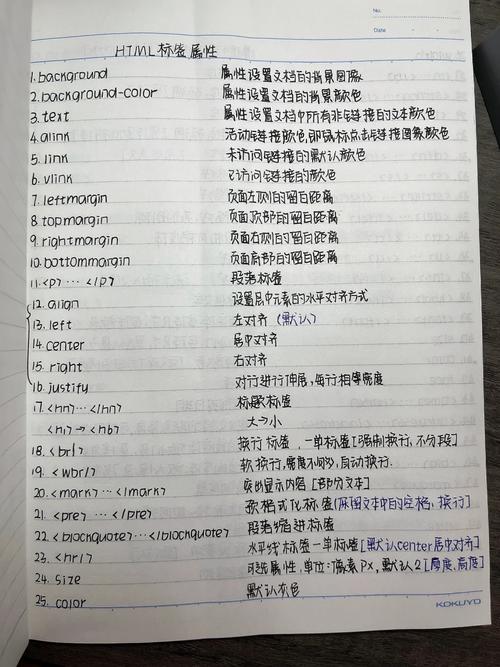 No.
Date
HTML标签属性
1.background 属性设置文档的背景图像
2.background-color 属性设置文档的背景颜色
3.text 属性设置文档中所有非链接的文本颜色
4.alink 活动链接颜色,即鼠标点击链接图象颜色
5.link 未访问链接的默认颜色
6.vlink 已访问链接的颜色
7.leftmargin 页面左侧的留白距离
8.topmargin 页面顶部的留白距离
9.rightmargin 页面右侧的留白距离
10.bottommargin 页面肩部的留白距离
11.<p>…</p> 段落标签
12.align 设置居中元素的水平对齐方式
13.left 左对齐(默认)
14.center 居中对齐
15.right 右对齐
16.justify 对行进行伸展,每行相等宽度
17.<hn>…</hn> 标题标签
<h1>→<h6> 大→小
18.<br/> 换行标签,一单标签[强制换行,不分段]
19.<wbr/> 软换行,宽度不够,自动换行.
20.<mark>…</mark> 突出显示内容[部分文本]
21.<pre>…</pre> 预格式化标签[原图文本中的空格,换行]
22.<blockquote>…</blockquote> 段落缩进标签
23.<hr/> 水平线标签一单标签[默认center居中对齐]
24.size 可选属性,单位:像素px,默认2[厚度,高度]
25.color 默认灰色
KOKUYO